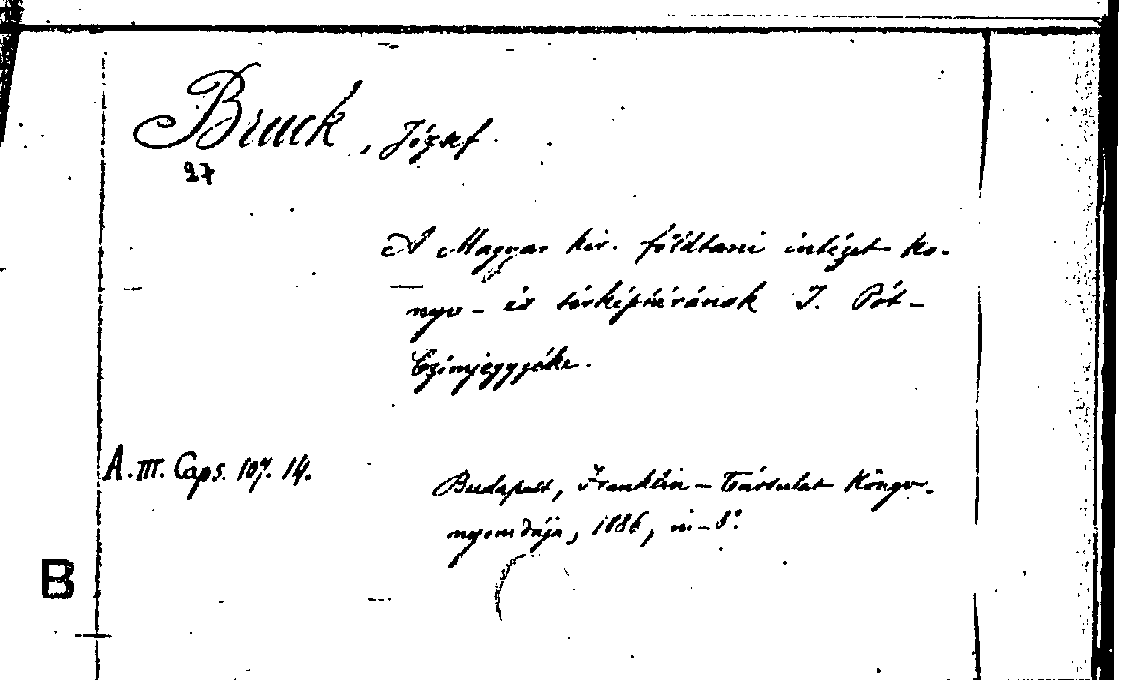 Bruck, József
27
A Magyar kir. földtani intézet ko-
nyv- és térképtárának I. Pót-
Czímjegyzéke.
A. III. Caps. 107. 14.
Budapest, Franklin-Társulat Könyv-
nyomdája, 1886, in-8°.
B